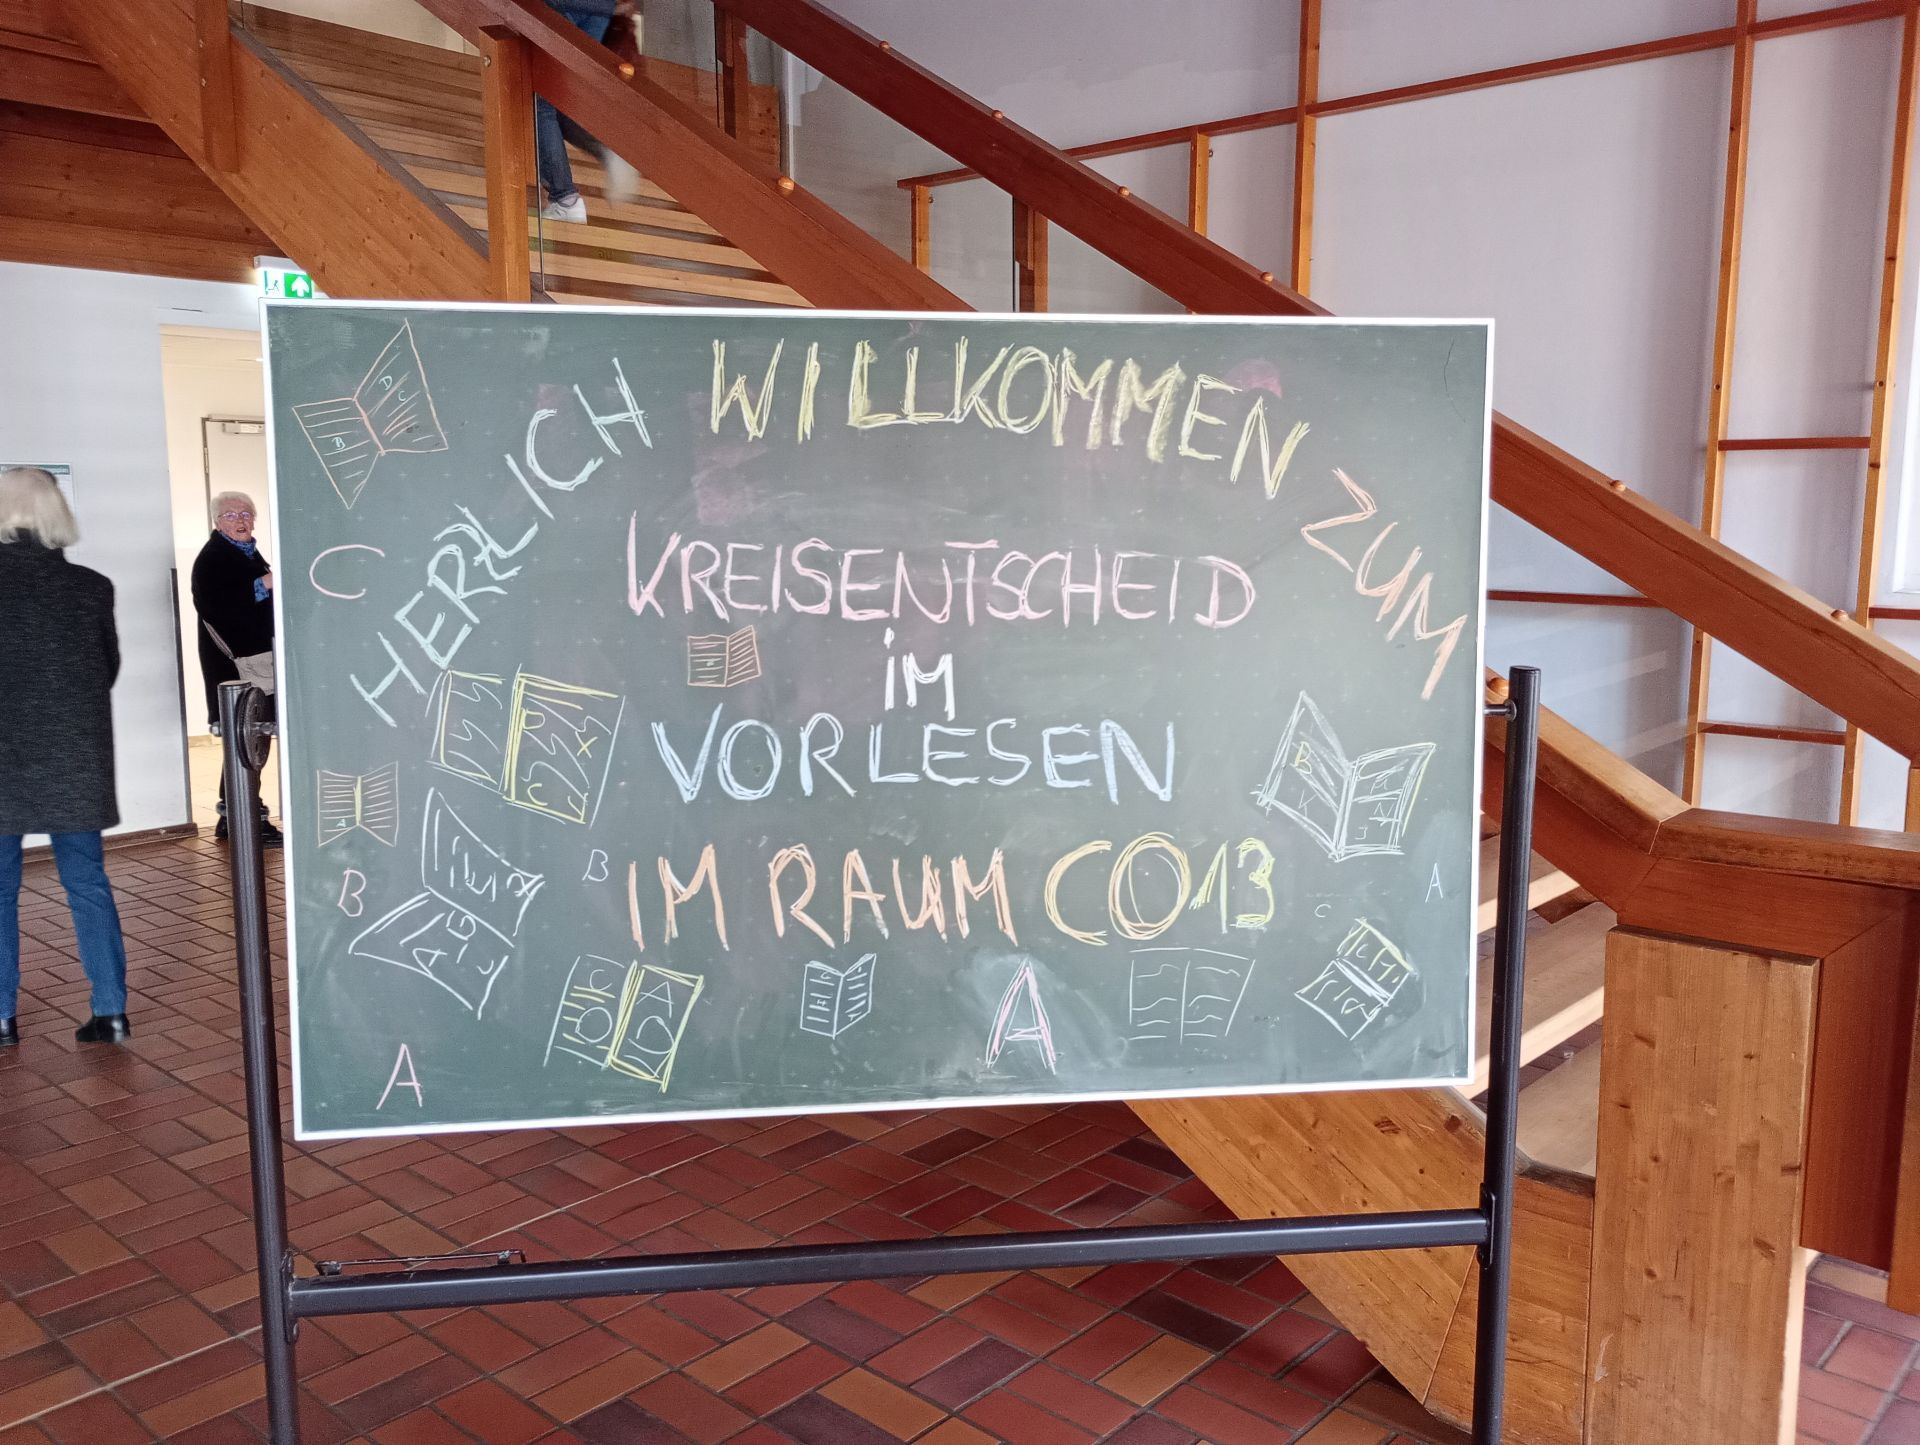 HERZLICH WILLKOMMEN ZUM
KREISENTSCHEID
iM
VORLESEN
IM RAUM C013
C
B
B
A
A
C
A